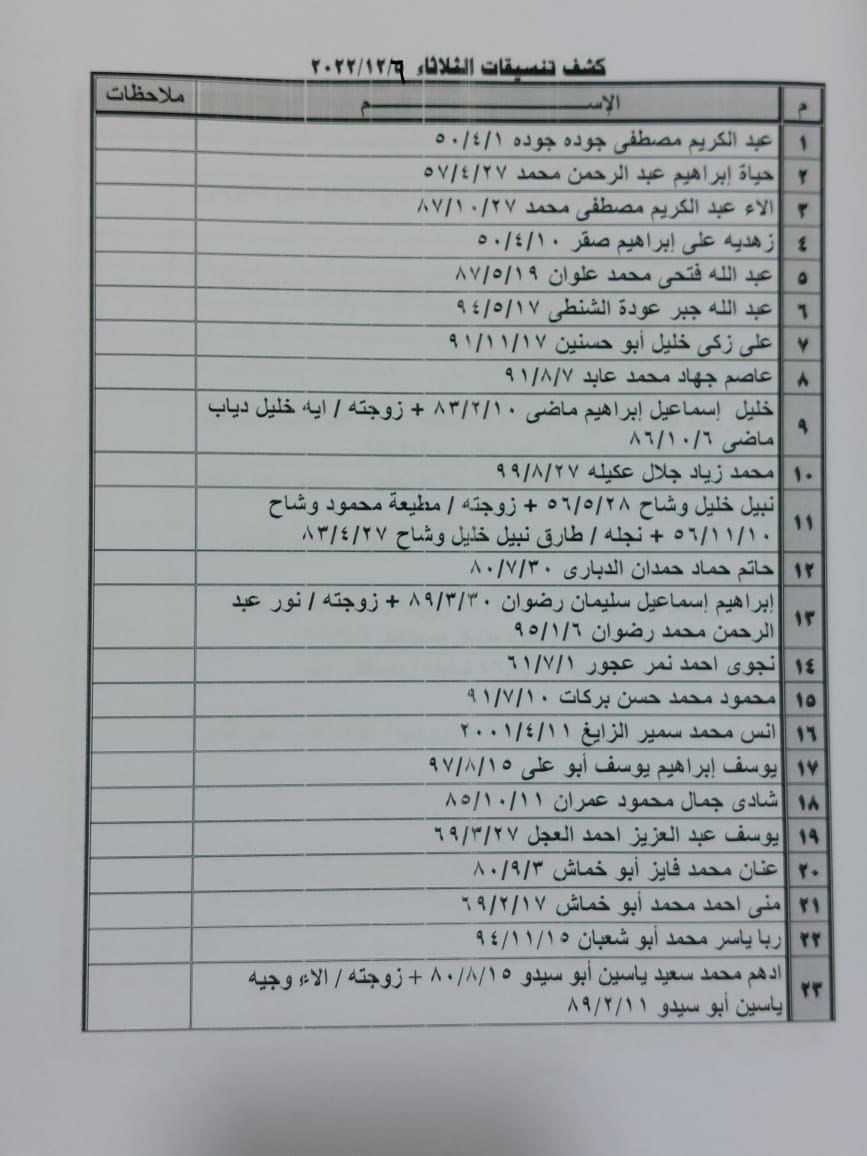 كشف تنسيقات الثلاثاء ٢٠٢٢/١٢/٦
م الإســـــــــــــم ملاحظات
١ عبد الكريم مصطفى جوده جوده ٥٠/٤/١
٢ حياة إبراهيم عبد الرحمن محمد ٥٧/٤/٢٧
٣ الاء عبد الكريم مصطفى محمد ٨٧/١٠/٢٧
٤ زهديه على إبراهيم صقر ٥٠/٤/١٠
٥ عبد الله فتحى محمد علوان ٨٧/٥/١٩
٦ عبد الله جبر عودة الشنطى ٩٤/٥/١٧
٧ على زكى خليل أبو حسنين ٩١/١١/١٧
٨ عاصم جهاد محمد عابد ٩١/٨/٧
٩ خليل إسماعيل إبراهيم ماضى ٨٣/٢/١٠ + زوجته / ايه خليل دياب
ماضى ٨٦/١٠/٦
١٠ محمد زياد جلال عكيله ٩٩/٨/٢٧
١١ نبيل خليل وشاح ٥٦/٥/٢٨ + زوجته / مطيعة محمود وشاح
٥٦/١١/١٠ + نجله / طارق نبيل خليل وشاح ٨٣/٤/٢٧
١٢ حاتم حماد حمدان الدبارى ٨٠/٧/٣٠
١٣ إبراهيم إسماعيل سليمان رضوان ٨٩/٣/٣٠ + زوجته / نور عبد
الرحمن محمد رضوان ٩٥/١/٦
١٤ نجوى احمد نمر عجور ٦١/٧/١
١٥ محمود محمد حسن بركات ٩١/٧/١٠
١٦ انس محمد سمير الزايغ ٢٠٠١/٤/١١
١٧ يوسف إبراهيم يوسف أبو على ٩٧/٨/١٥
١٨ شادى جمال محمود عمران ٨٥/١٠/١١
١٩ يوسف عبد العزيز احمد العجل ٦٩/٣/٢٧
٢٠ عنان محمد فايز أبو خماش ٨٠/٩/٣
٢١ منى احمد محمد أبو خماش ٦٩/٢/١٧
٢٢ ربا ياسر محمد أبو شعبان ٩٤/١١/١٥
٢٣ ادهم محمد سعيد ياسين أبو سيدو ٨٠/٨/١٥ + زوجته / الاء وجيه
ياسين أبو سيدو ٨٩/٢/١١